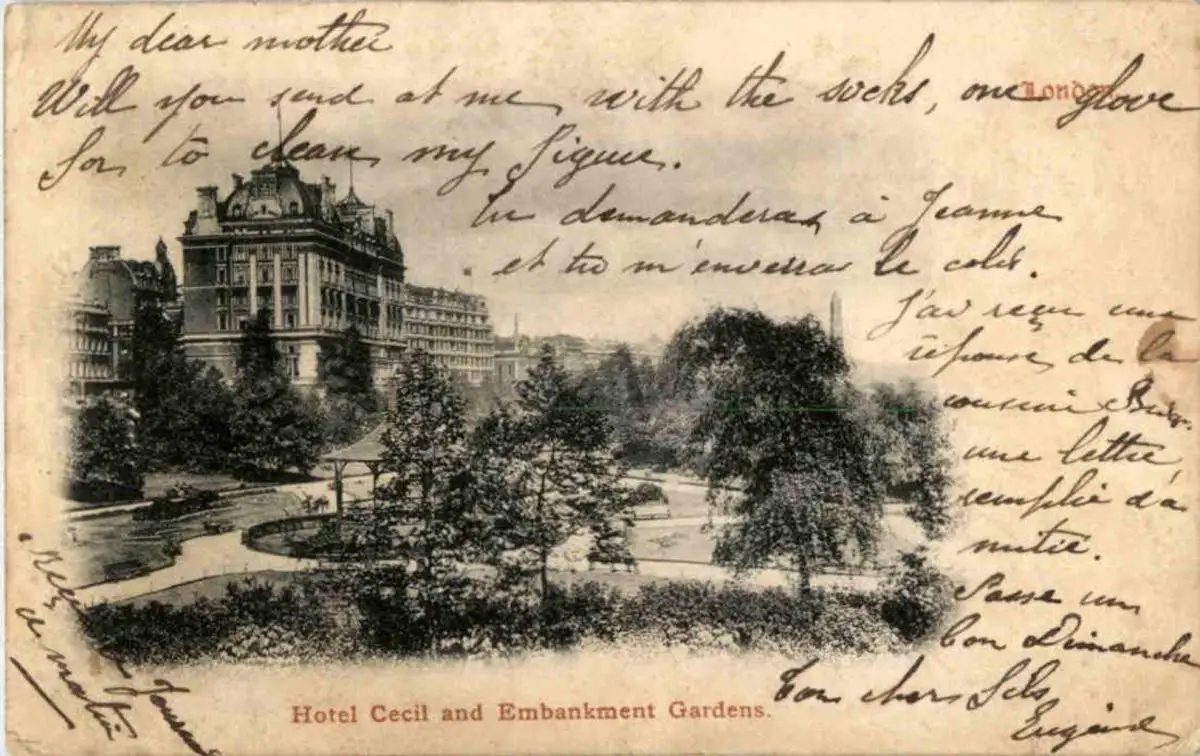 My dear mother
Will you send at me with the socks, one glove
London
for to clean my figure.
Tu demanderas à Jeanne
et tu m'enverras le colis.
J'ai reçu une
réponse de la
cousine
une lettre
remplie d'a
mitié.
Passe un
bon Dimanche
Ton cher fils
Eugène
Reçu Journal
ce matin
Hotel Cecil and Embankment Gardens.